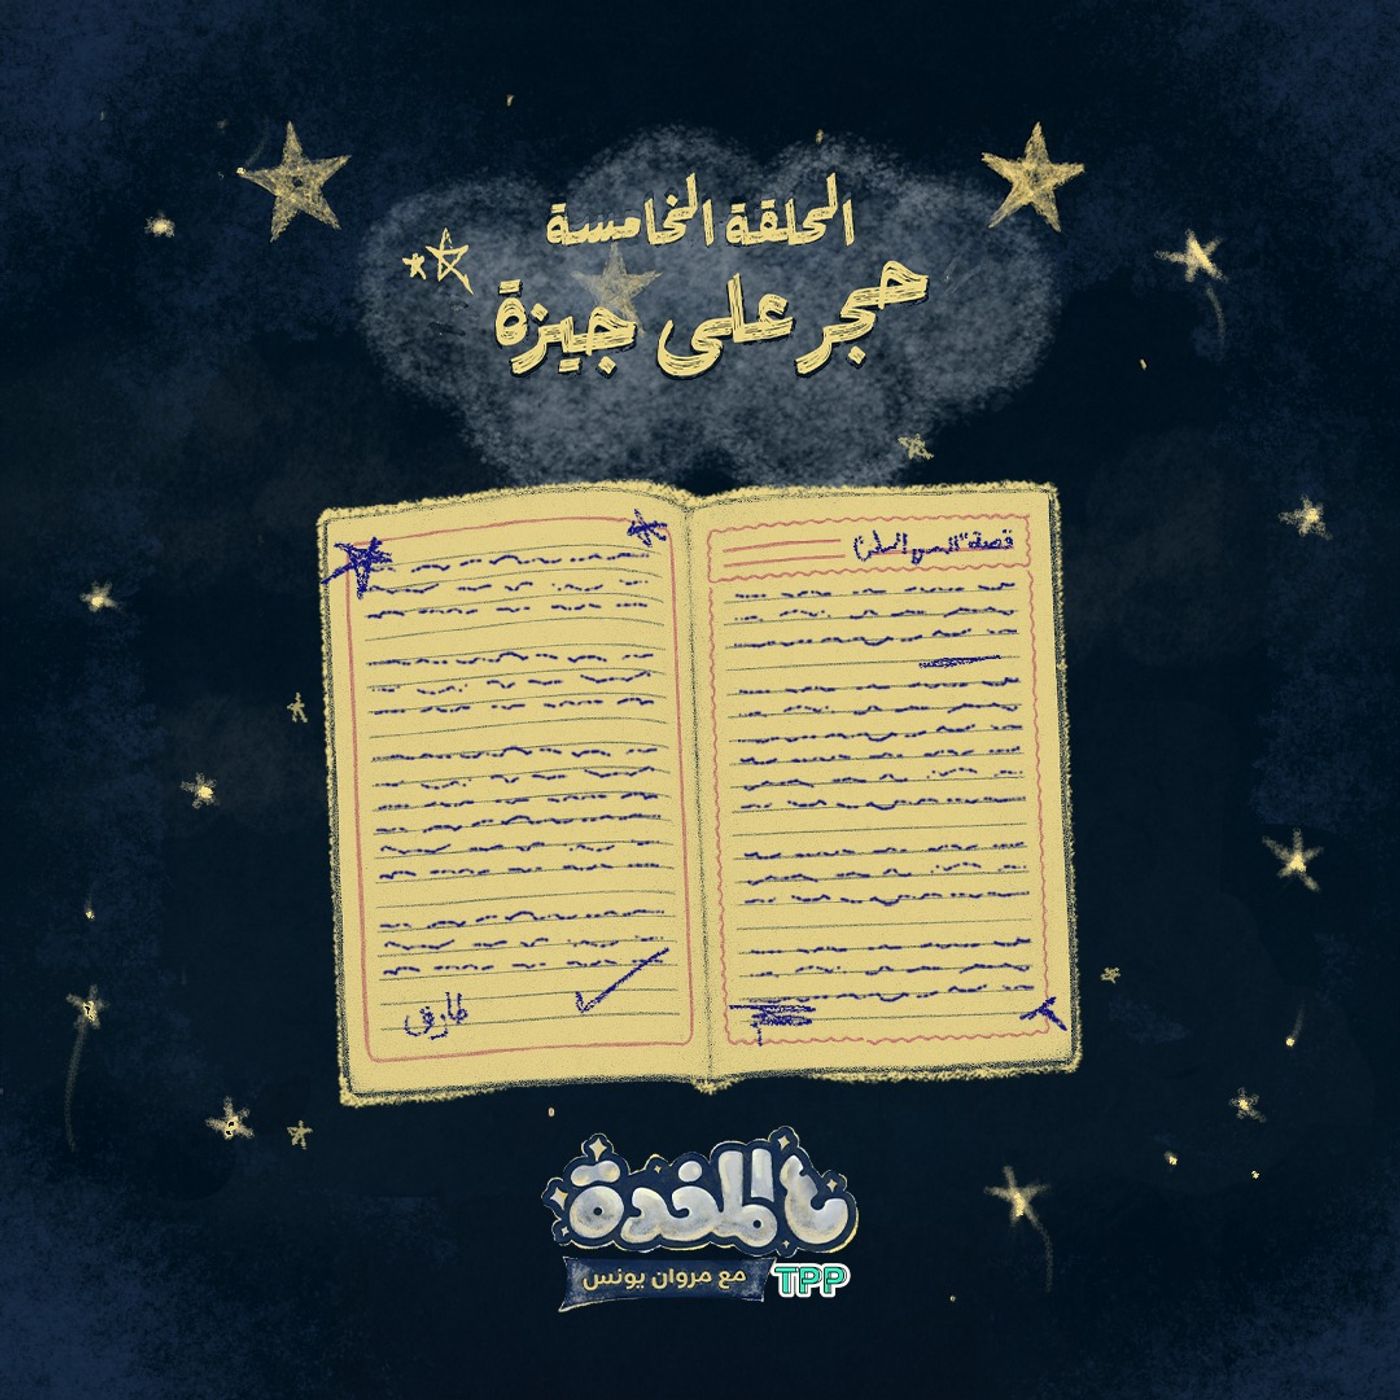 الحلقة الخامسة
حجر على جيزة
قصة "
طارق
عالمخدة
مع مروان يونس
TPP